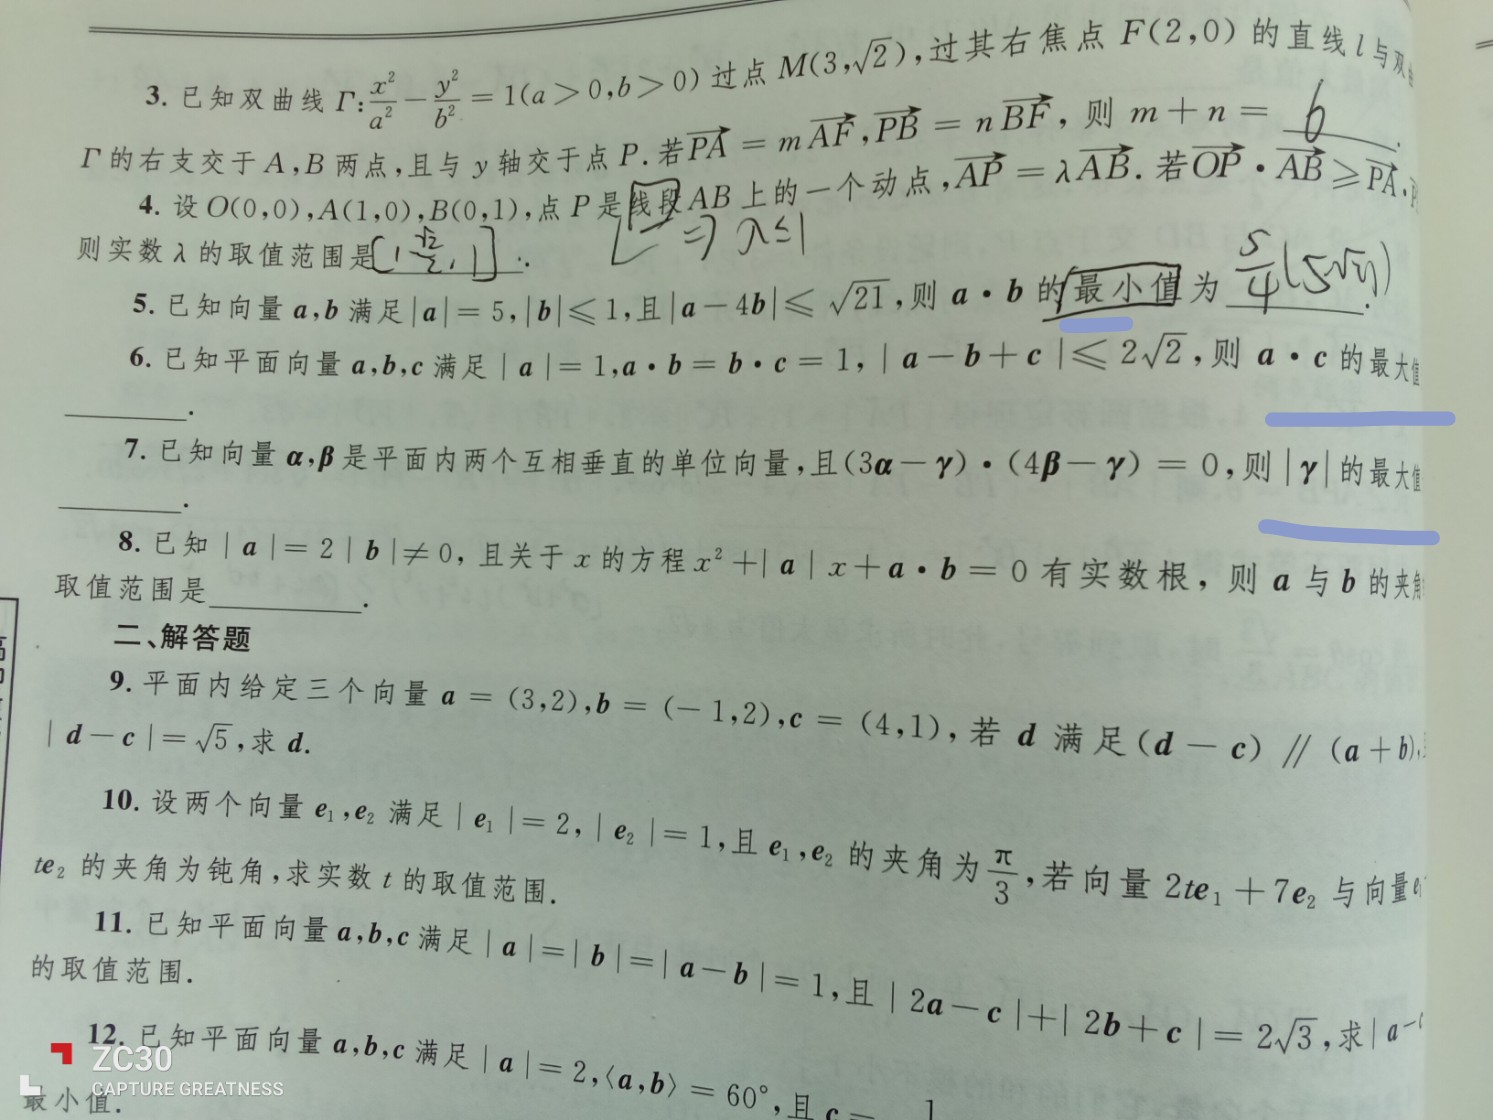 3. 已知双曲线 Γ: x²/a² − y²/b² = 1(a>0,b>0) 过点 M(3,√2),过其右焦点 F(2,0) 的直线 l 与双
Γ 的右支交于 A,B 两点,且与 y 轴交于点 P. 若 PA = m AF, PB = n BF, 则 m + n = 6.
4. 设 O(0,0), A(1,0), B(0,1), 点 P 是线段 AB 上的一个动点, AP = λ AB. 若 OP · AB ⩾ PA ·
则实数 λ 的取值范围是 .
⇒ λ≤1
5. 已知向量 a,b 满足 |a| = 5, |b| ⩽ 1, 且 |a − 4b| ⩽ √21, 则 a · b 的最小值为 5/4 .
6. 已知平面向量 a,b,c 满足 |a| = 1, a · b = b · c = 1, |a − b + c| ⩽ 2√2, 则 a · c 的最大值
.
7. 已知向量 α,β 是平面内两个互相垂直的单位向量, 且 (3α − γ) · (4β − γ) = 0, 则 |γ| 的最大值
.
8. 已知 |a| = 2|b| ≠ 0, 且关于 x 的方程 x² + |a|x + a · b = 0 有实数根, 则 a 与 b 的夹角
取值范围是 .
二、解答题
9. 平面内给定三个向量 a = (3,2), b = (−1,2), c = (4,1), 若 d 满足 (d − c) // (a + b),
|d − c| = √5, 求 d.
10. 设两个向量 e₁,e₂ 满足 |e₁| = 2, |e₂| = 1, 且 e₁,e₂ 的夹角为 π/3, 若向量 2te₁ + 7e₂ 与向量
te₂ 的夹角为钝角, 求实数 t 的取值范围.
11. 已知平面向量 a,b,c 满足 |a| = |b| = |a − b| = 1, 且 |2a − c| + |2b + c| = 2√3, 求 |a −
的取值范围.
12. 已知平面向量 a,b,c 满足 |a| = 2, ⟨a,b⟩ = 60°, 且 c =
最小值.
ZC30
CAPTURE GREATNESS